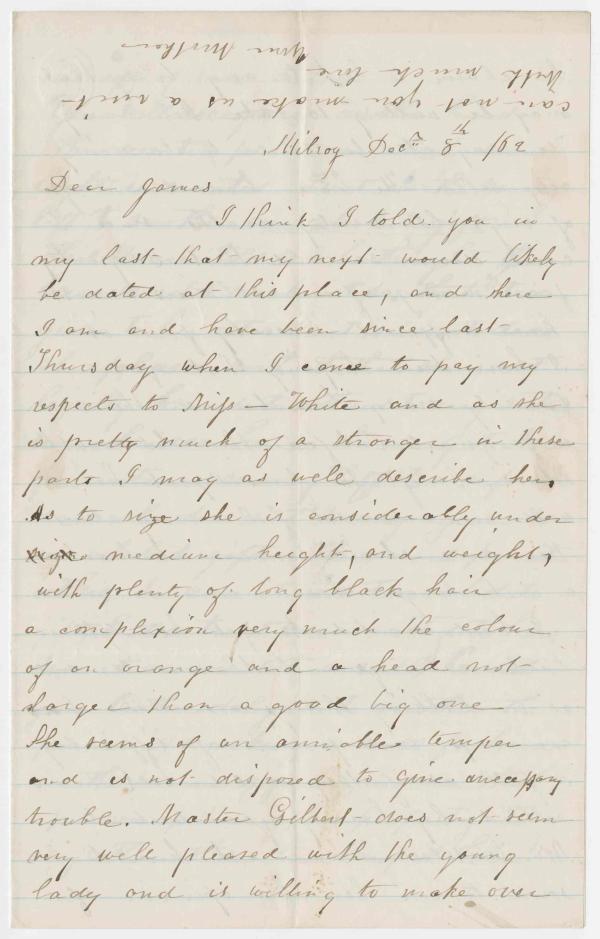 can not you make us a visit
With much love
Your Mother
Milroy Decr 8th /62
Dear James
I think I told you in
my last that my next would likely
be dated at this place, and here
I am and have been since last
Thursday when I came to pay my
respects to Miss – White and as she
is pretty much of a stranger in these
parts I may as well describe her.
As to size she is considerably under
medium height, and weight,
with plenty of long black hair
a complexion very much the colour
of an orange and a head not
larger than a good big one
She seems of an amiable temper
and is not disposed to give unecessary
trouble. Master Gilbert does not seem
very well pleased with the young
lady and is willing to make over